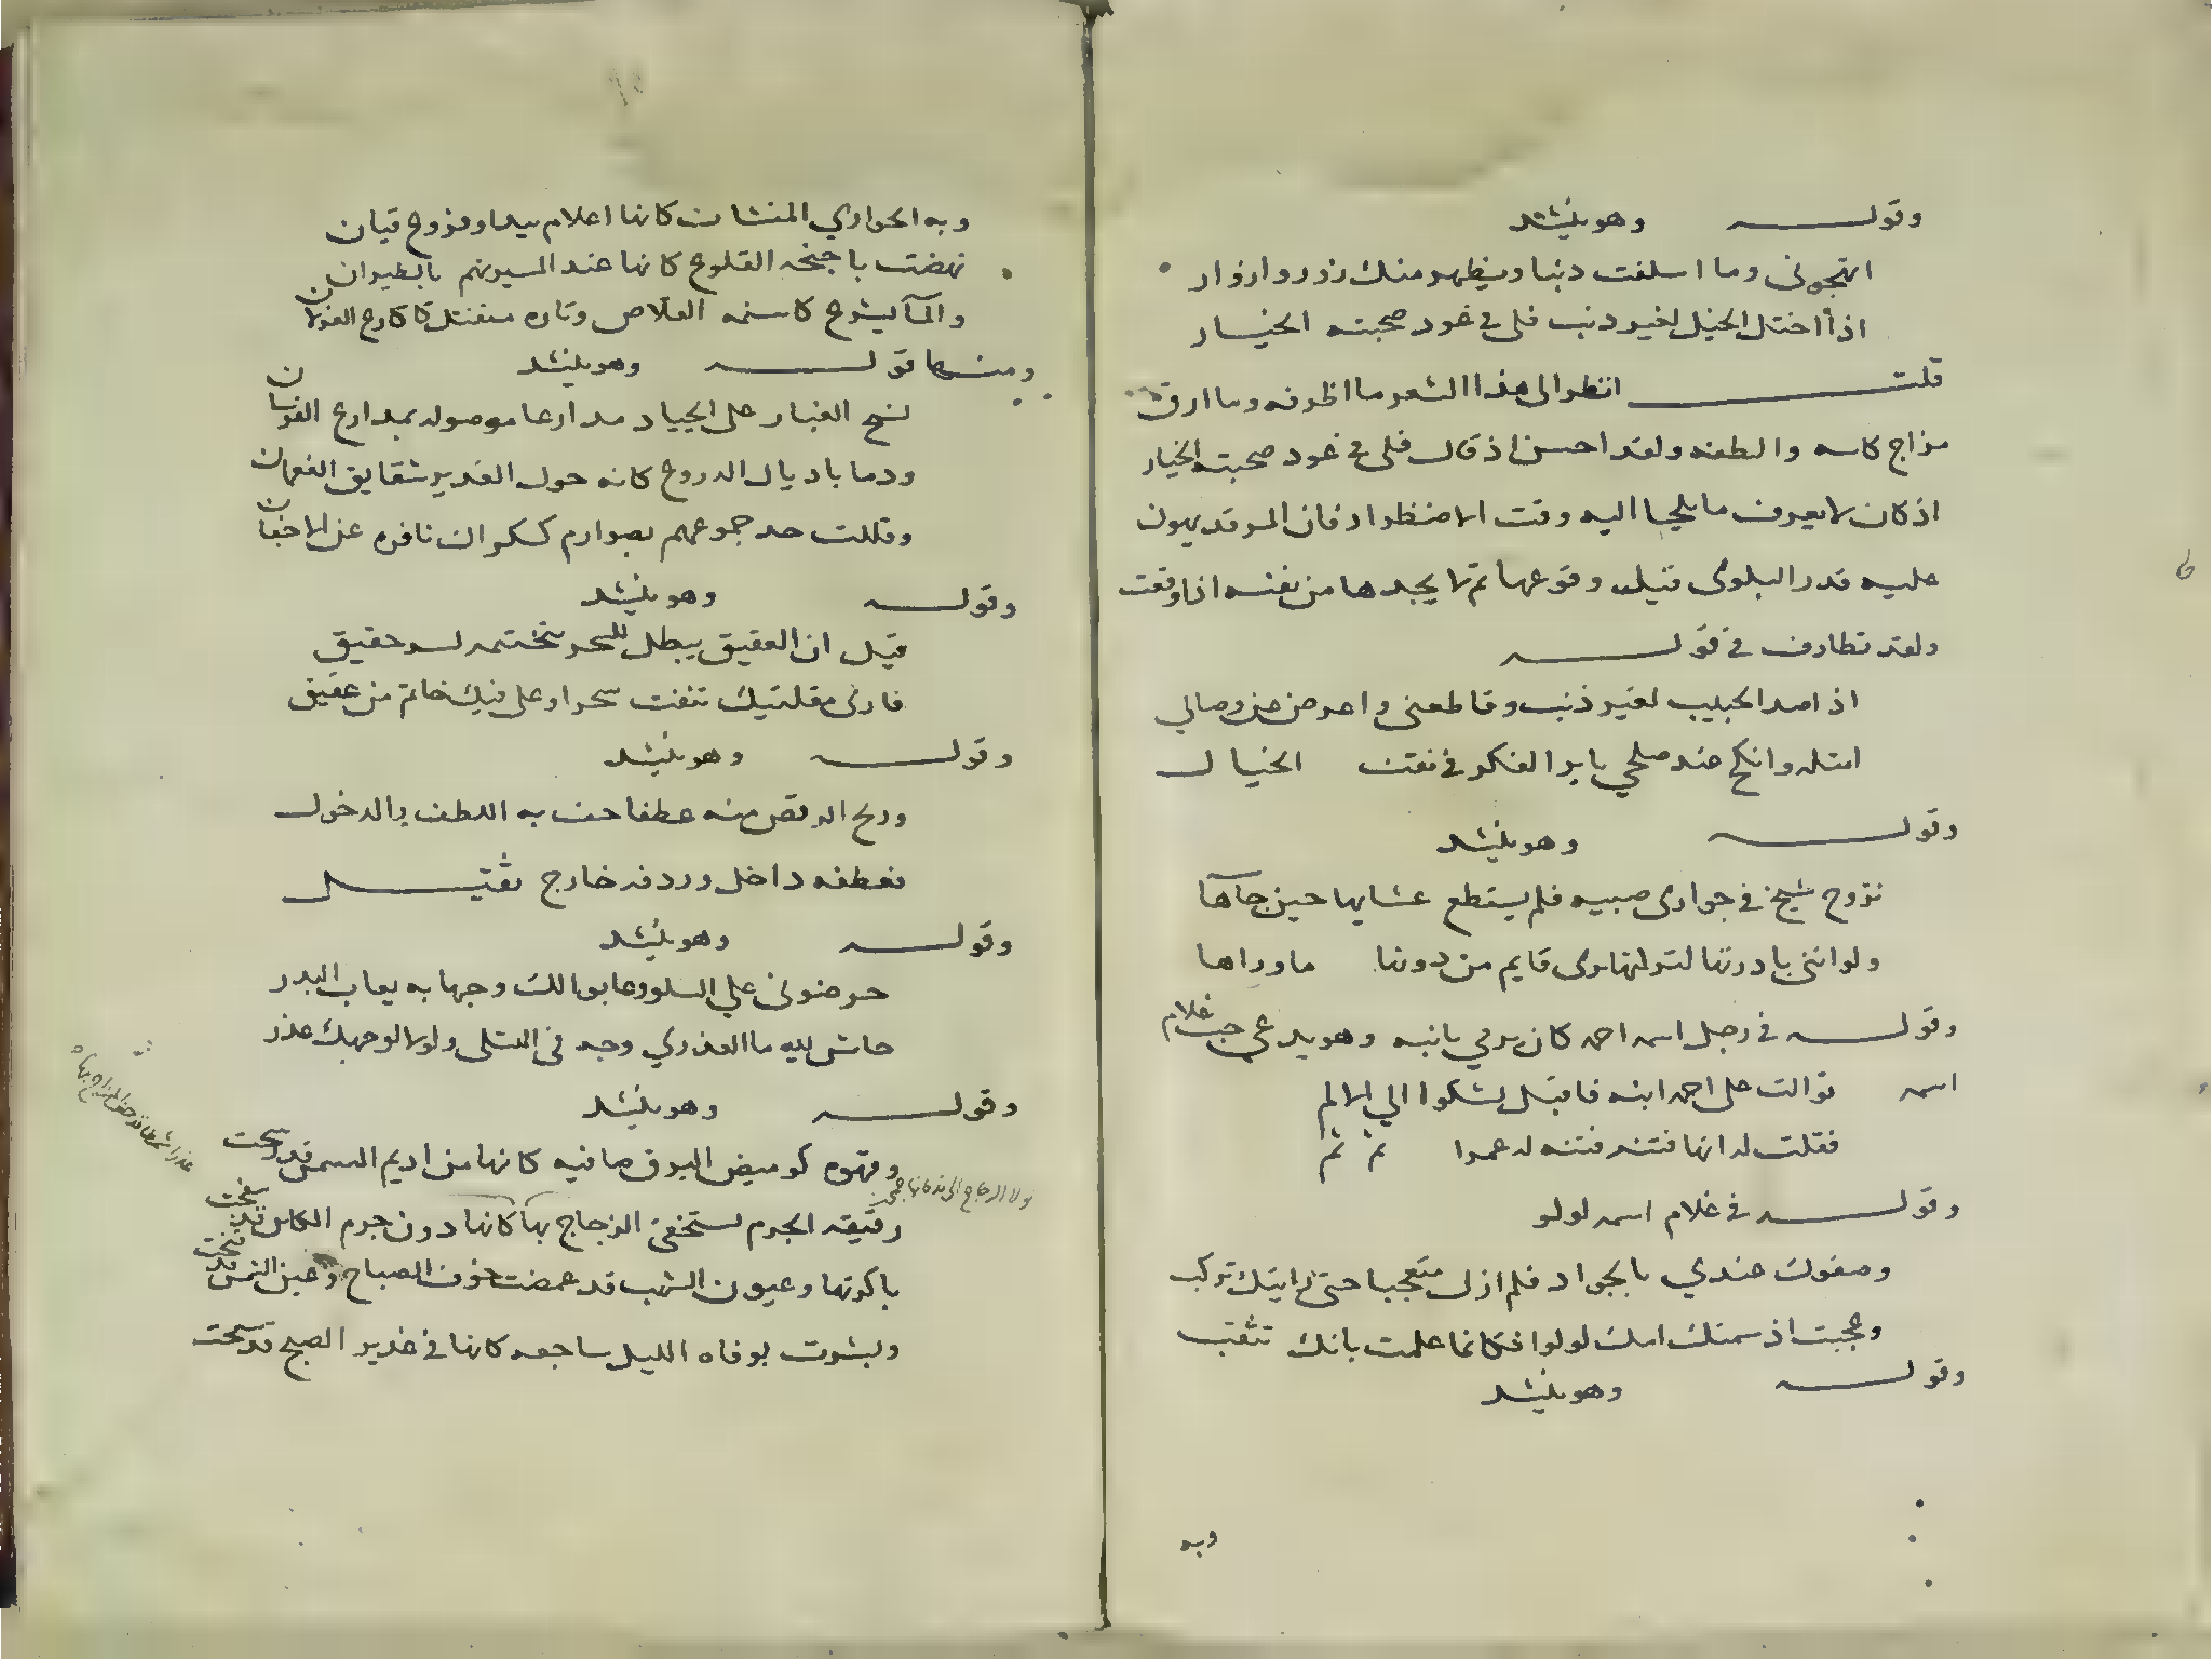 وقوله وهو ينشد
اتهجرنى وما اسلفت ذنبا ويظهر منك زور وازورار
اذا اختل الخل لغير ذنب فلى فى عود صحبته الخيار
قلت انظر الى هذا الشعر ما اظرفه وما ارق
مزاج كاسه والطفه ولقد احسن اذ قال فلى فى عود صحبته الخيار
اذ كان لا يعرف ما يلجا اليه وقت الاضطرار فان المر قد يهون
عليه قدر البلوى قبل وقوعها ثم لا يجدها من نفسه اذا وقعت
ولقد تظارف فى قوله
اذا صد الحبيب لغير ذنب وقاطعنى واعرض عن وصالي
امثله وانكح عند صلحي باير الفكر فى نفت الخيال
وقوله وهو ينشد
تزوج شيخ فى جوارى صبيه فلم يستطع غشيانها حين جاآها
ولو اننى بادرتها لتولها يرى قايم من دونها ما وراها
وقوله فى رجل اسمه احمد كان يرمي بابنه وهو يدعى حب غلام
اسمه توالت على احمد ابنه فاقبل يشكوا الي الالم
فقلت له انها فتنه فتنه لد عمرا تم تم
وقوله فى غلام اسمه لولو
وصفوك عندي بالجواد فلم ازل متعجبا حتى رايتك تركب
وعجبت اذ سمتك امك لولوا فكانما علمت بانك تثقب
وقوله وهو ينشد
وبه
وبه الجواري المنشات كانها اعلام بيد او فروح قيان
نهضت باجنحه القلوع كانها عند المسير تهم بالطيران
والمآ يسرح كاسنمه القلاص وتاره متفتل كاكارع الغزلان
ومنها قوله وهو ينشد
نسج الغبار على الجياد مدارعا موصوله بمدارع الفرسان
ودما باذيال الدروع كانه حول الغدير شقايق النعمان
وفللت حد جموعهم بصوارم ككراك نافره عن الاجفان
وقوله وهو ينشد
قيل ان العقيق يبطل السحر بتختمه لسر حقيق
فارى مقلتيك تنفث سحرا وعلى فيك خاتم من عقيق
وقوله وهو ينشد
وريح الرقص منه عطفا حف به اللطف والدخول
فعطفه داخل وردفه خارج ثقيل
وقوله وهو ينشد
حرضونى علي السلو وعابوا لك وجها به يعاب البدر
حاش لله ما العذري وجه فى التسلى ولا لوجهك عذر
وقوله وهو ينشد
وقهوه كوميض البرق صافيه كانها من اديم الشمس قد
رقيقه الجرم يستخفى الزجاج بها كانها دون جرم الكاس قد سفحت
باكرتها وعيون الشهب قد غمضت خوف الصباح وعين الشمس قد فتحت
وبشرت بوفاه الليل ساجعه كانها فى غدير الصبح قد سبحت